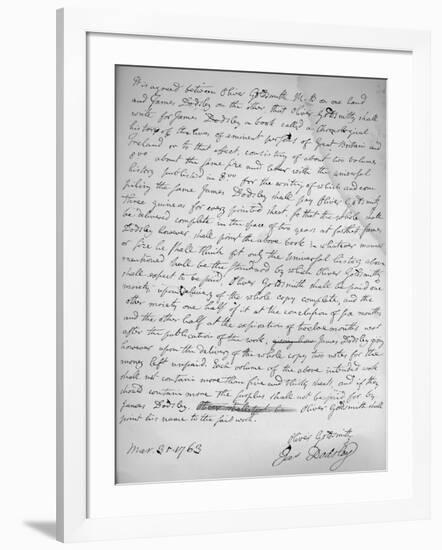 It is agreed between Oliver Goldsmith M.B on one hand
and James Dodsley on the other that Oliver Goldsmith shall
write for James Dodsley a book called a Chronological
history of the lives of eminent persons of Great Britain and
Ireland or to that effect, consisting of about two volumes
8vo about the same size and letter with the universal
history published in 8vo for the writing of which and com
piling the same James Dodsley shall pay Oliver Goldsmith
three guineas for every printed sheet, so that the whole shall
be delivered complete in the space of two years at farthest James
Dodsley however shall print the above book in whatever manner
or size he shall think fit only the Universal history above
mentioned shall be the standard by which Oliver Goldsmith
shall expect to be paid. Oliver Goldsmith shall be paid one
moiety upon delivery of the whole copy complete, and the
other moiety one half of it at the conclusion of six months
and the other half at the expiration of twelve months next
after the publication of the work, James Dodsley giving
however upon the delivery of the whole copy two notes for the
money left unpaid. Each volume of the above intended work
shall not contain more than five and thirty sheets, and if they
should contain more the surplus shall not be paid for by
James Dodsley. Oliver Goldsmith shall
print his name to the said work.
Oliver Goldsmith
Mar. 31 1763
Jas Dodsley